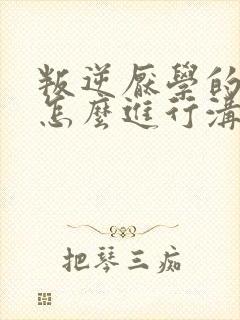 叛逆厭學的
怎麼進行溝
把琴三痴